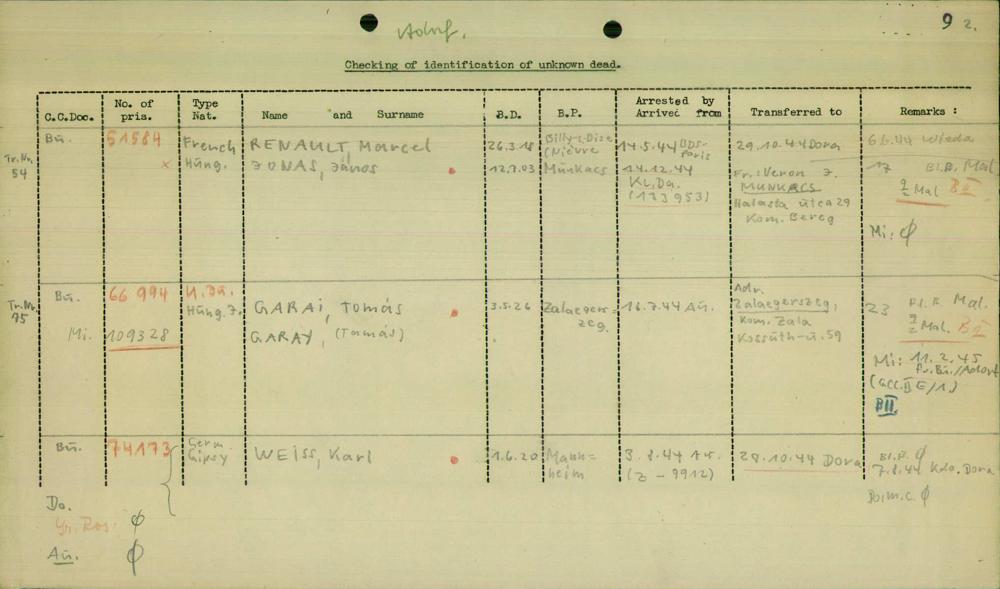 Adorf.
9 2.
Checking of identification of unknown dead.
C.C.Doc. No. of pris. Type Nat. Name and Surname B.D. B.P. Arrested by Arrived from Transferred to Remarks :
Tr.Nr. 54
Bu. 51584 French RENAULT, Marcel 26.3.18 (Nièvre 14.5.44 BDS. Paris 29.10.44 Dora 6.6.44 Wieda
x Hung. JONAS, János 12.7.03 Munkacs 14.12.44 Fr.: Veron J. 17 Bl.B. Mal.
KL.Da. MUNKACS 9/2 Mal BII
(133953) Halasta utca 29
Kom. Bereg
Mi: ϕ
Tr.Nr. 75
Bu. 66 994 U. Da. Hung. J. GARAI, Tomás 3.5.26 Zalaegers= zeg. 16.7.44 Au. Adr. Zalaegerszeg, 23 Bl.B. Mal.
Mi. 109328 GARAY, (Tamás) Kom. Zala 9/2 Mal. BII
Kossuth-u. 59
Mi: 11.2.45
Fr.Bu./Adorf
(acc. II E/1)
BII
Bu. 74173 Germ Gipsy WEISS, Karl 1.6.20 Mann= heim 3.8.44 Au. 28.10.44 Dora Bl.B. ϕ
(Z - 9912) 7.8.44 Kdo. Dora
Do.m.c. ϕ
Do.
ϕ
Au. ϕ